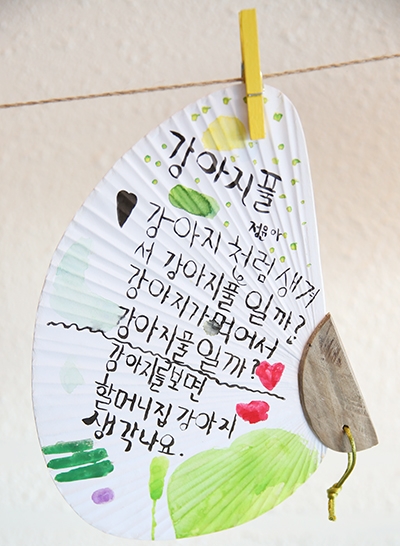 강아지풀
정유아
강아지처럼생겨
서 강아지풀일까?
강아지가먹어서
강아지풀일까?
강아지를보면
할머니집강아지
생각나요.